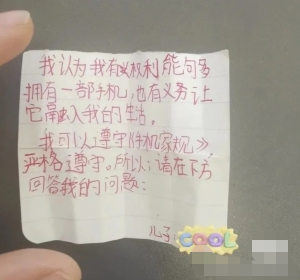 我认为我有权利能句多
拥有一部手机,也有义务让
它融入我的生活。
我可以遵守《手机家规》,
严格遵守。所以,请在下方
回答我的问题:
儿子
COOL